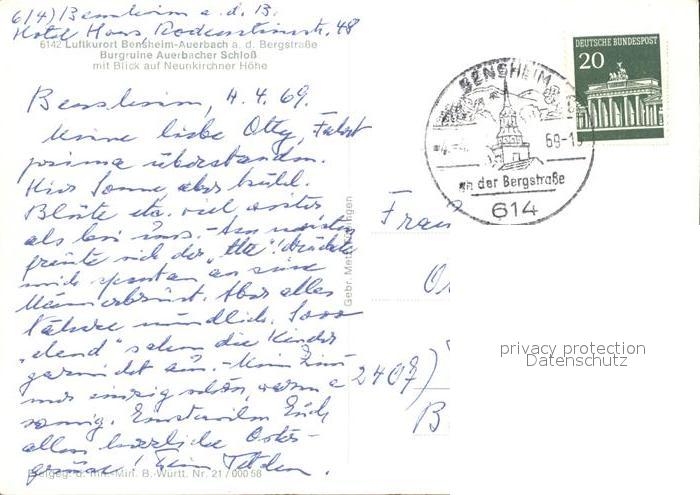 614) Bensheim a. d. B.
Hotel Haus Rodensteinstr. 48
6142 Luftkurort Bensheim-Auerbach a. d. Bergstraße
Burgruine Auerbacher Schloß
mit Blick auf Neunkirchner Höhe
Bensheim, 4.4.69.
Meine liebe Otty, Fahrt
prima überstanden.
Hier Sonne aber kühl.
Blüte etc. viel weiter
als bei uns. - Am meisten
freute sich der
mich spontan an seine
Männerbrust. Aber alles
Nähere mündlich. So
"elend" sahen die Kinder
gar nicht aus. - Mein Zim-
mer einzig schön, warm u.
sonnig. Einstweilen Euch
allen herzliche Oster-
grüße! Dein
Gebr. Metz, Tübingen
DEUTSCHE BUNDESPOST
20
BENSHEIM
69-1
an der Bergstraße
614
Frau
2407)
B
privacy protection
Datenschutz
Freigeg. d. Inn.-Min. B.-Württ. Nr. 21/000 58